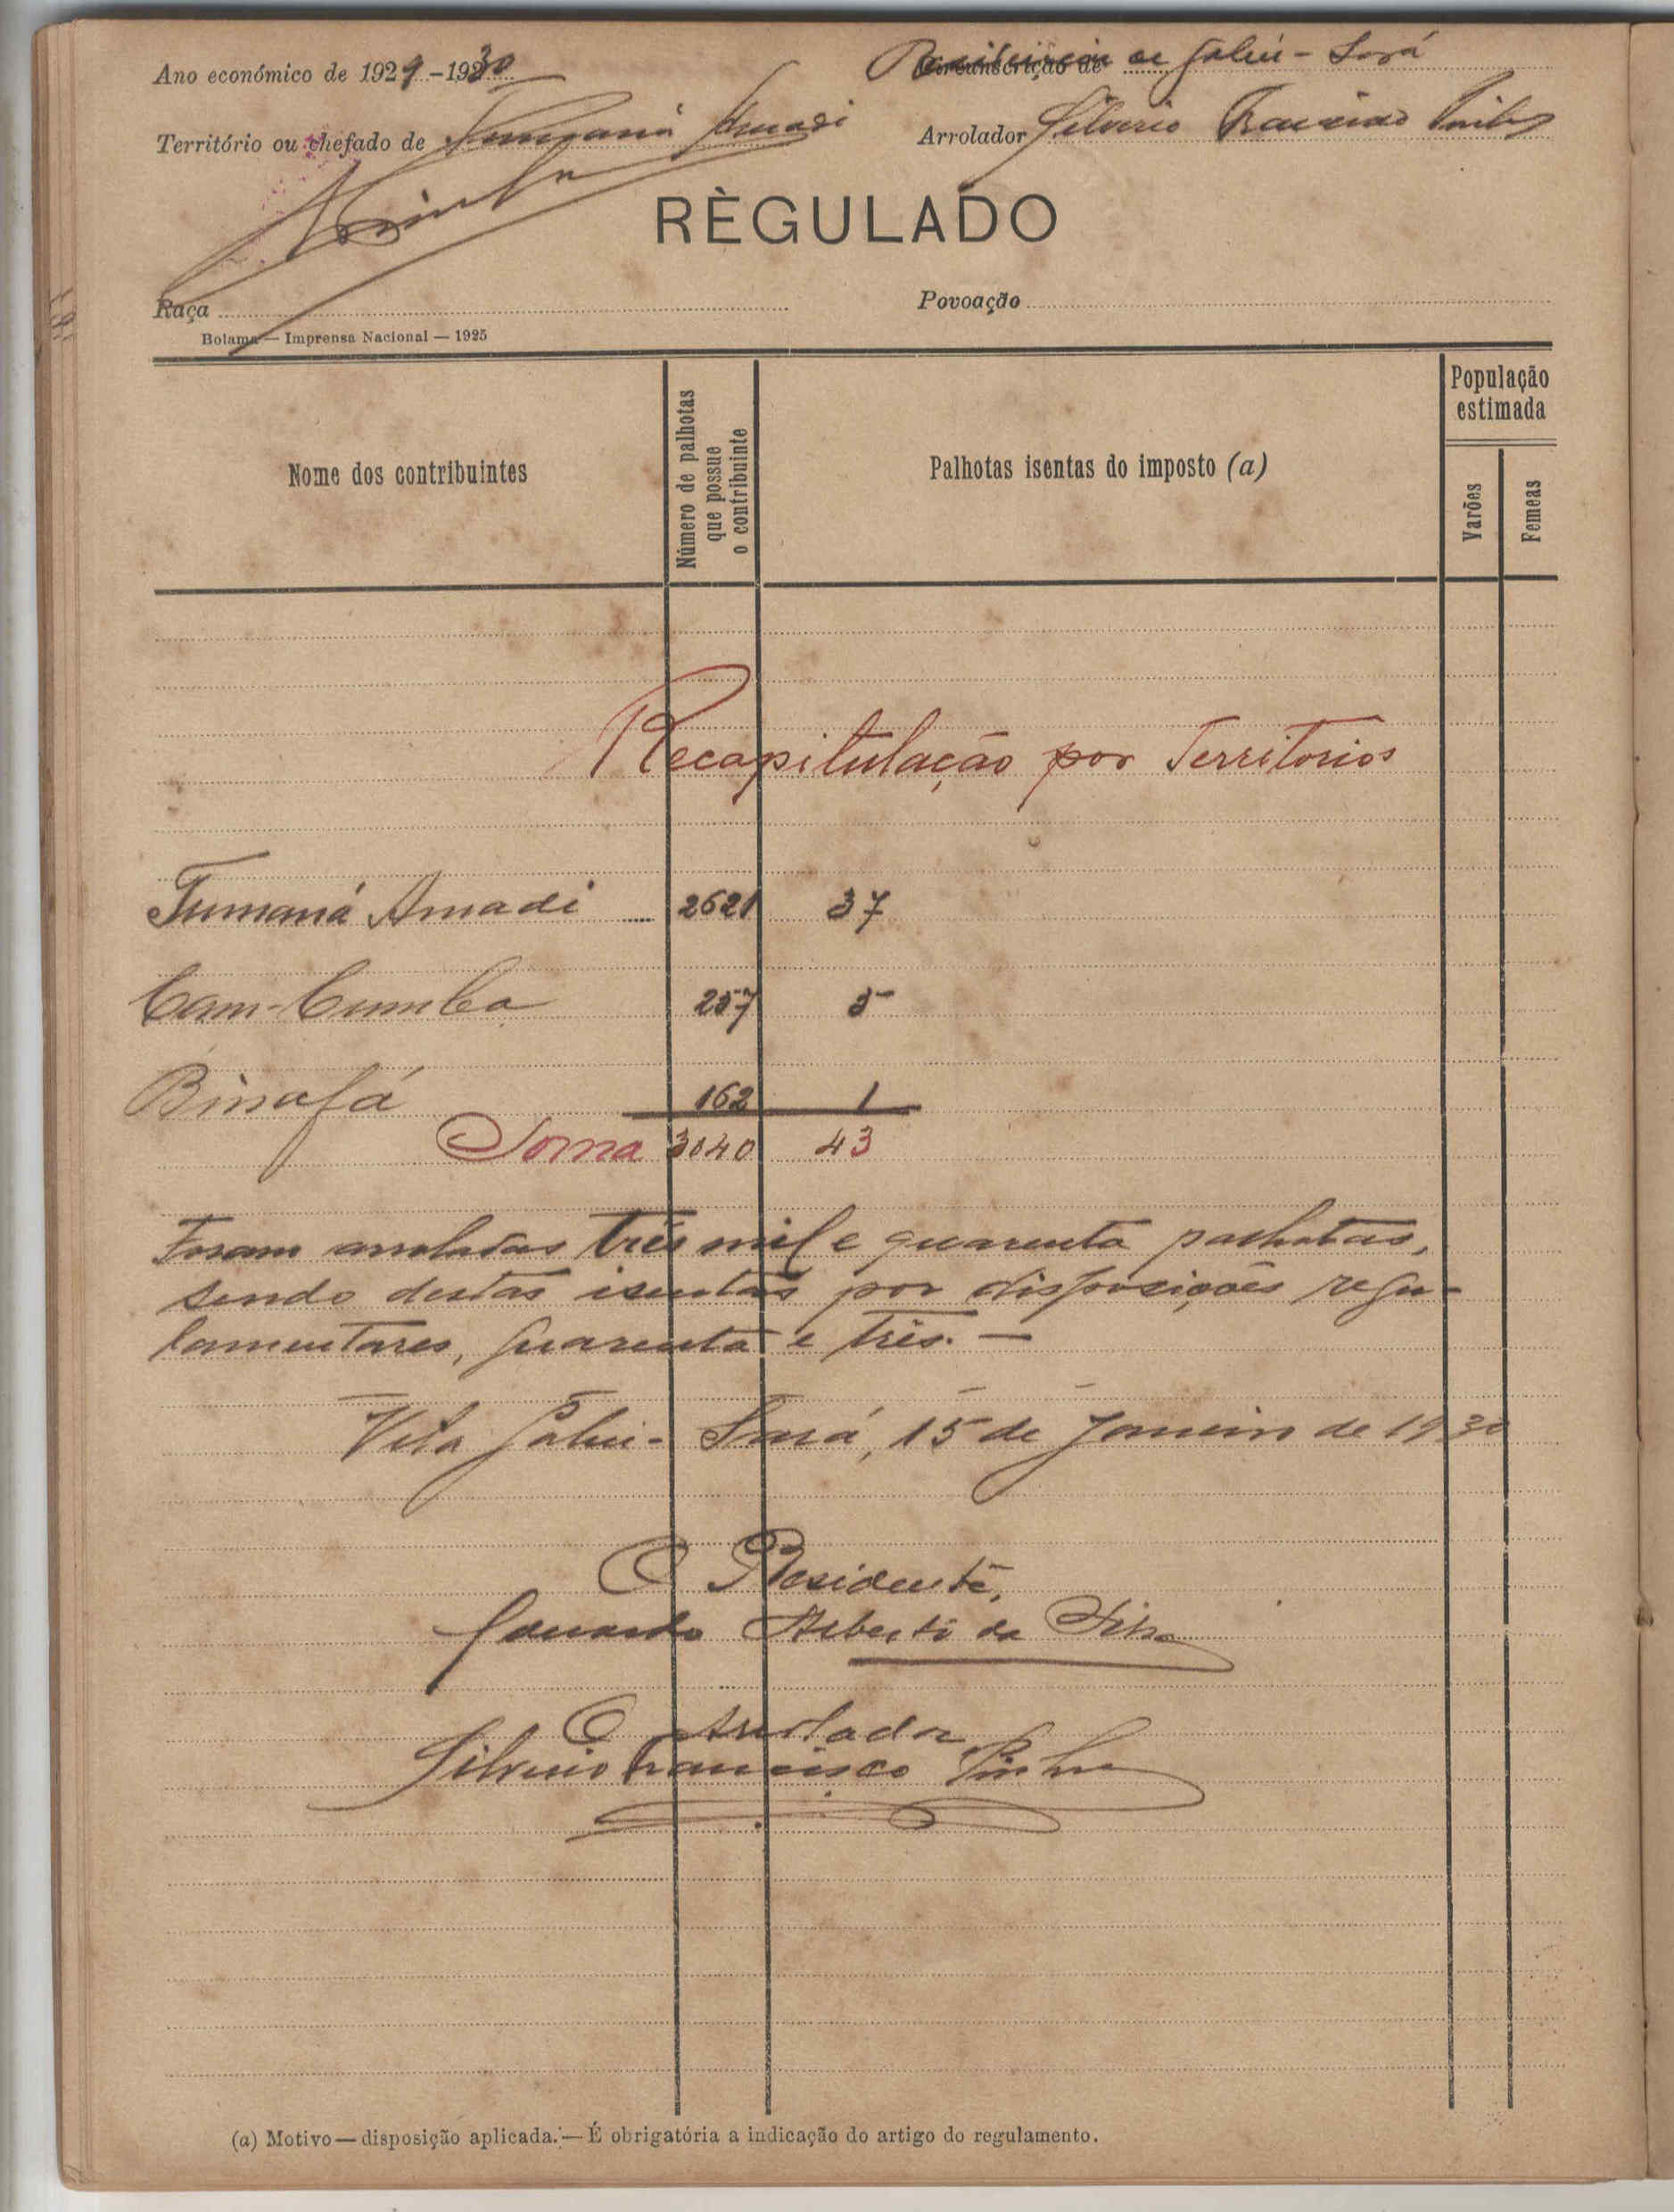 Ano económico de 1929-1930
Residencia de Gabú-Sará
Circunscrição de
Território ou chefado de Tumaná Amadi
Arrolador Silverio Francisco Pinho
Pinho
RÈGULADO
Raça
Povoação
Bolama — Imprensa Nacional — 1925
Nome dos contribuintes
Número de palhotas
que possue
o contribuinte
Palhotas isentas do imposto (a)
População
estimada
Varões
Femeas
Recapitulação por Territorios
Tumaná Amadi 2621 37
Cam-Cumba 257 5
Binafá 162 1
Soma 3040 43
Foram arroladas três mil e quarenta palhotas,
sendo destas isentas por disposições regu-
lamentares, quarenta e três. —
Vila Gabú-Sará, 15 de Janeiro de 1930
O Residente,
Alberto da Silva
O Arrolador
Silverio Francisco Pinho
(a) Motivo — disposição aplicada. — É obrigatória a indicação do artigo do regulamento.